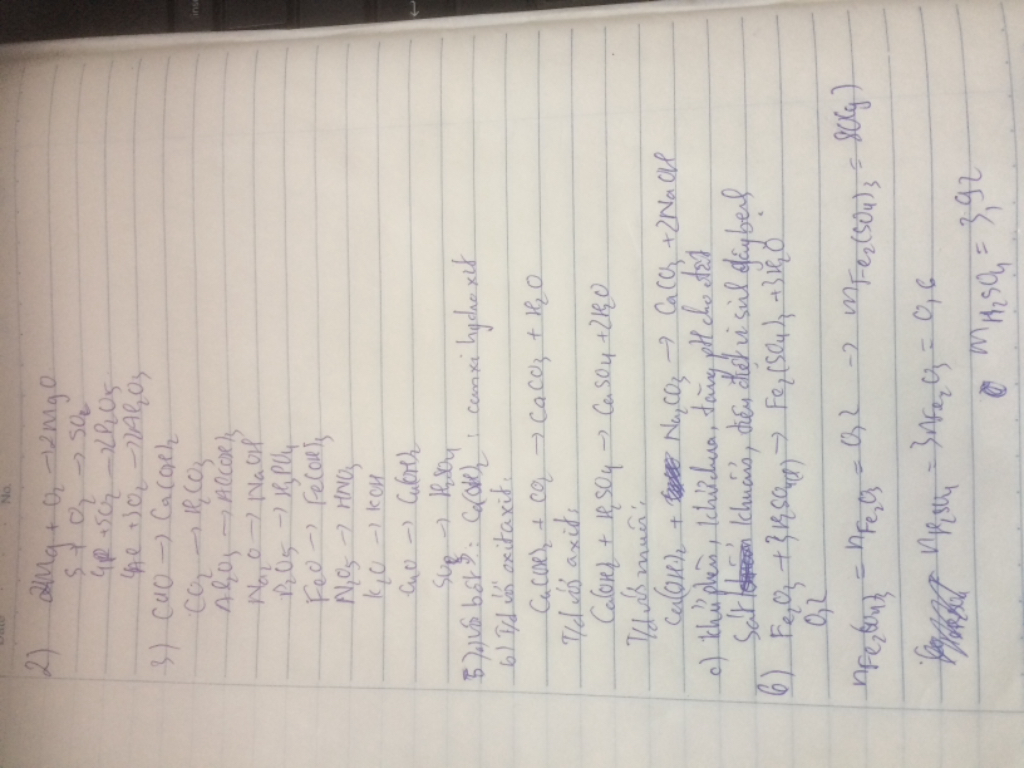 No.
2) 2Mg + O2 → 2MgO
S + O2 → SO2
4P + 5O2 → 2P2O5
4Al + 3O2 → 2Al2O3
3) CaO → Ca(OH)2
CO2 → H2CO3
Al2O3 → Al(OH)3
Na2O → NaOH
P2O5 → H3PO4
FeO → Fe(OH)2
N2O5 → HNO3
K2O → KOH
CuO → Cu(OH)2
SO3 → H2SO4
5) a) Vôi bột: Ca(OH)2: canxi hydroxit
b) T/d với oxit axit:
Ca(OH)2 + CO2 → CaCO3 + H2O
T/d với axit:
Ca(OH)2 + H2SO4 → CaSO4 + 2H2O
T/d với muối:
Ca(OH)2 + Na2CO3 → CaCO3 + 2NaOH
c) khử phèn, khử chua, tăng pH cho đất
Sát khuẩn,
6) Fe2O3 + 3H2SO4 → Fe2(SO4)3 + 3H2O
0,2
nFe2(SO4)3 = nFe2O3 = 0,2 → mFe2(SO4)3 = 80(g)
nH2SO4 = 3nFe2O3 = 0,6
mH2SO4 =